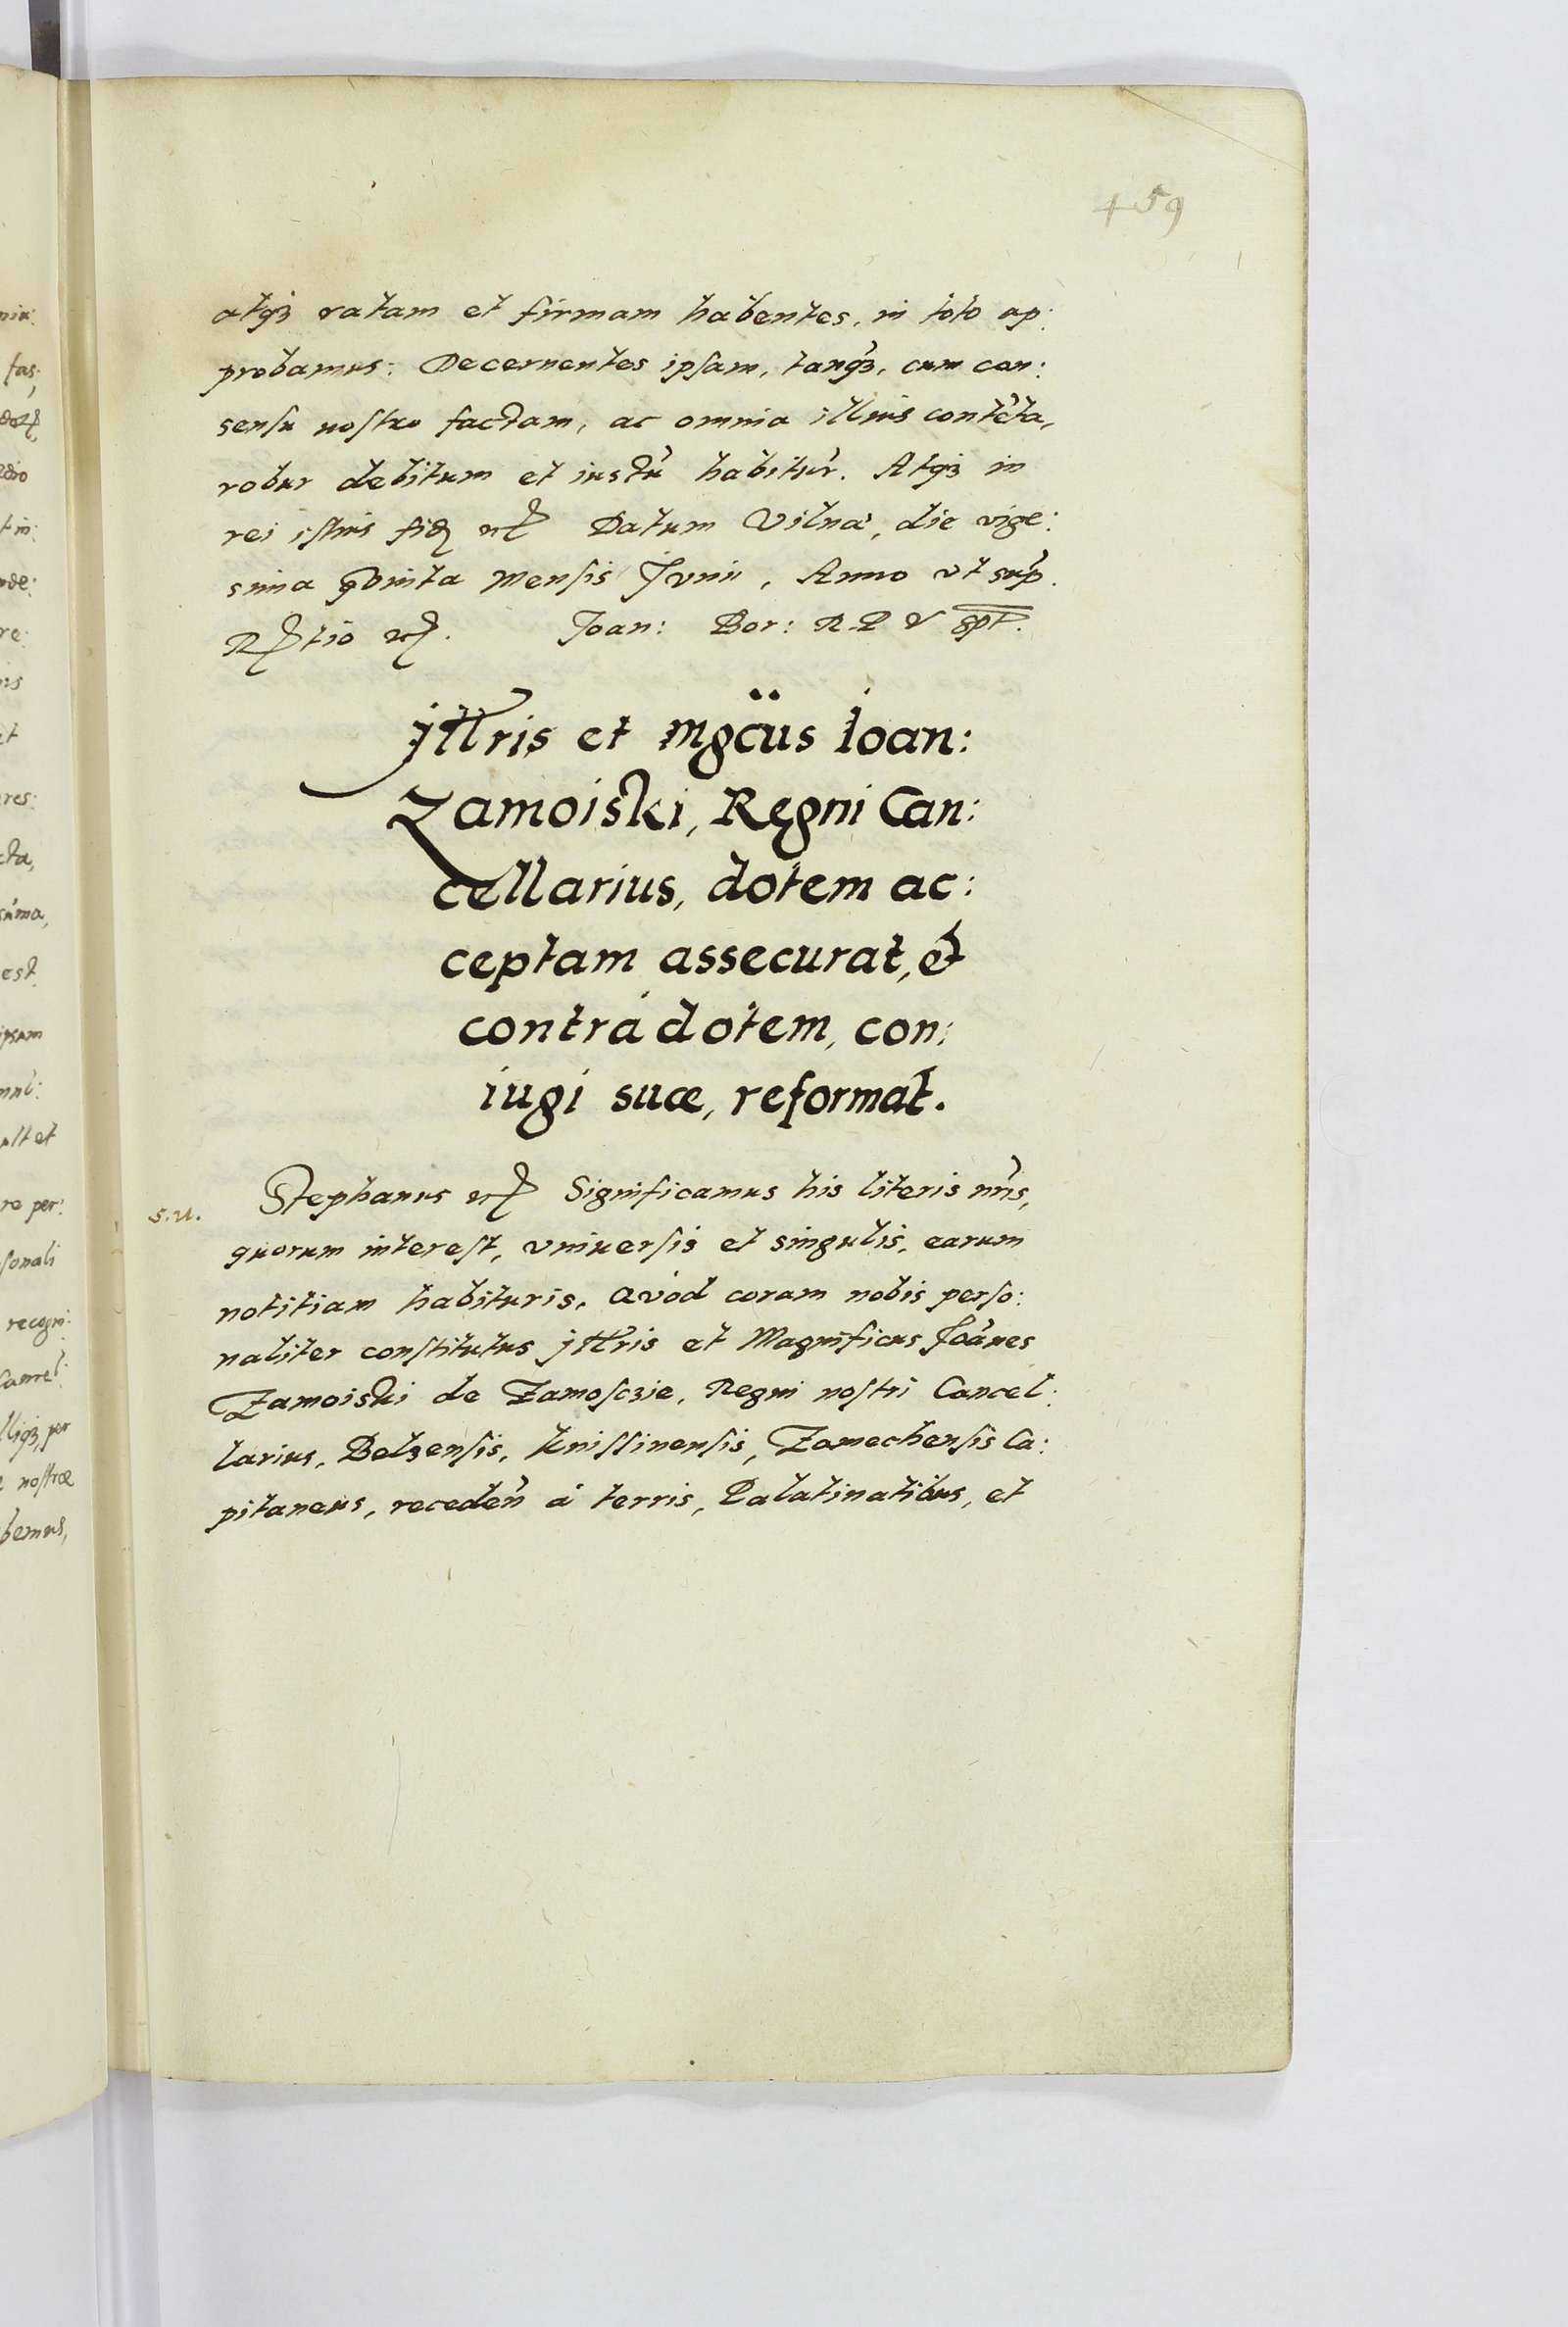 459
atqꝫ ratam et firmam habentes, in toto ap:
probamus: Decernentes ipsam, tanqꝫ, cum con:
sensu nostro factam, ac omnia illius contẽta,
robur debitum et iustũ habitur̃. Atqꝫ in
rei istius fiđ etc Datum Vilnæ, die vige:
sima qvinta mensis Jvnii, Anno vt sup̃.
Rttio etc. Joan: Bor: R P V spt.
jllris et mgcus Ioan:
Zamoiski, Regni Can:
cellarius, dotem ac:
ceptam assecurat, et
contrà dotem, con:
iugi suæ, reformat.
s.u.
Stephanus etc Significamus his literis nr̃is,
quorum interest, vniuersis et singulis, earum
notitiam habituris, Qvòd coram nobis perso:
naliter constitutus jllris et Magnificus Joãnes
Zamoiski de Zamosczie, Regni nostri Cancel:
larius, Belzensis, Knissinensis, Zamechensis Ca:
pitaneus, recedeñ à terris, Palatinatibus, et